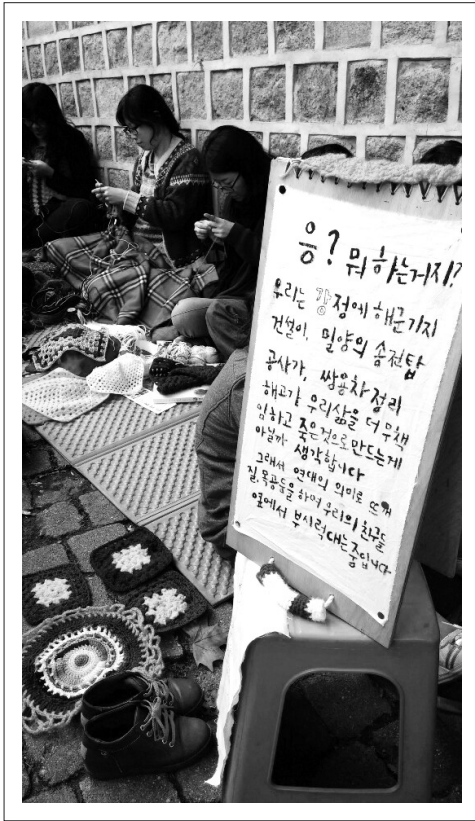 응? 뭐하는거지?
우리는 강정에 해군기지
건설이, 밀양의 송전탑
공사가, 쌍용차 정리
해고가 우리삶을 더 무책
임하고 죽은것으로 만드는게
아닐까 생각합니다
그래서 연대의 의미로 뜨개
질, 목공등을 하며 우리의 친구들
옆에서 부시럭대는중입니다